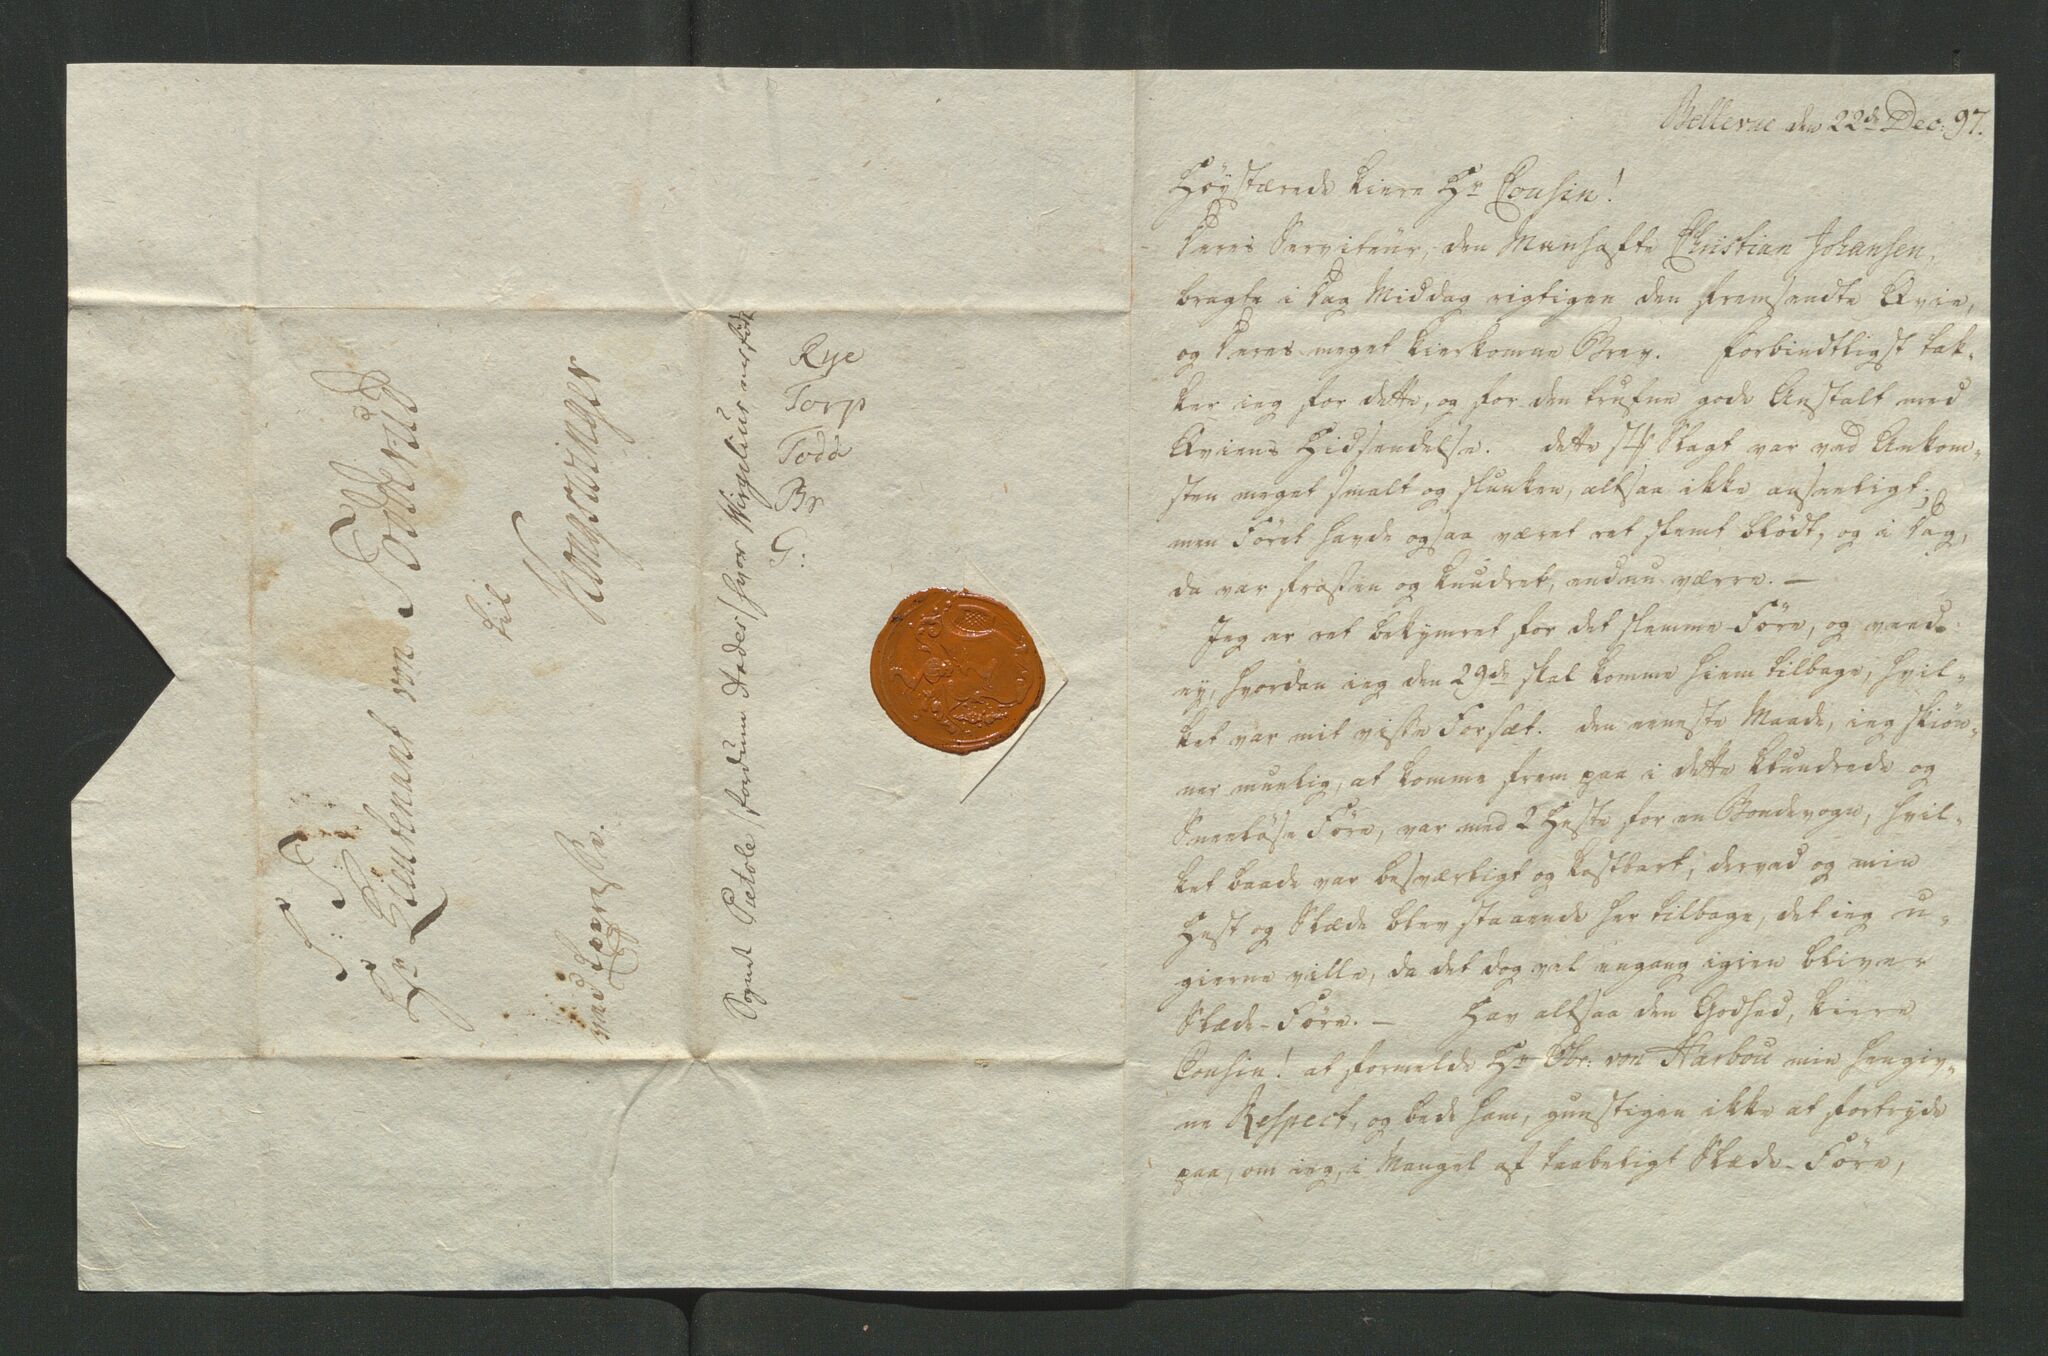 Bellevue den 22de Dec: 97.
Höystærede kiere Hr Cousin!
Deres Serviteur, den Manhafte Christian Johansen,
bragte i Dag Middag rigtigen den fremsendte Qvie,
og Deres meget kierkomne Brev. Forbindtligst tak-
ker ieg for dette, og for den trufne gode Anstalt med
Qviens Hidsendelse. dette st Slagt var ved Ankom-
sten meget smalt og slunken, altsaa ikke anseeligt;
men Föret havde ogsaa været ret slemt blödt, og i Dag,
da var frossen og knudret, endnu værre. —
Jeg er ret bekymret for det slemme Före, og veed
ey, hvordan ieg den 29de skal komme hiem tilbage, hvil-
ket var mit visse Forsæt. den eeneste Maade, ieg skiön-
ner muelig, at komme frem paa i dette knudrede og
Sneelöse Före, var med 2 Heste for en Bondevogn, hvil-
ket baade var besværligt og kostbart; derved og min
Hest og Slæde blev staaende her tilbage, det ieg u-
gierne ville, da det dog vel engang igien bliver
Slæde-Före. — Hav altsaa den Godhed, kiere
Cousin! at formelde Hr Obr: von Harbou min hengiv-
ne Respect, og bede ham, gunstigen ikke at fortryde
paa, om ieg, i Mangel af taaleligt Slæde-Före,
Rye
Torp
Todd
Br
G:
Sognet Pietole /fordum Andes/ hvor Virgilius er föd
S: T:
Hr Lieutenant von Todderud
til
Kongsvinger
ved Expresse.